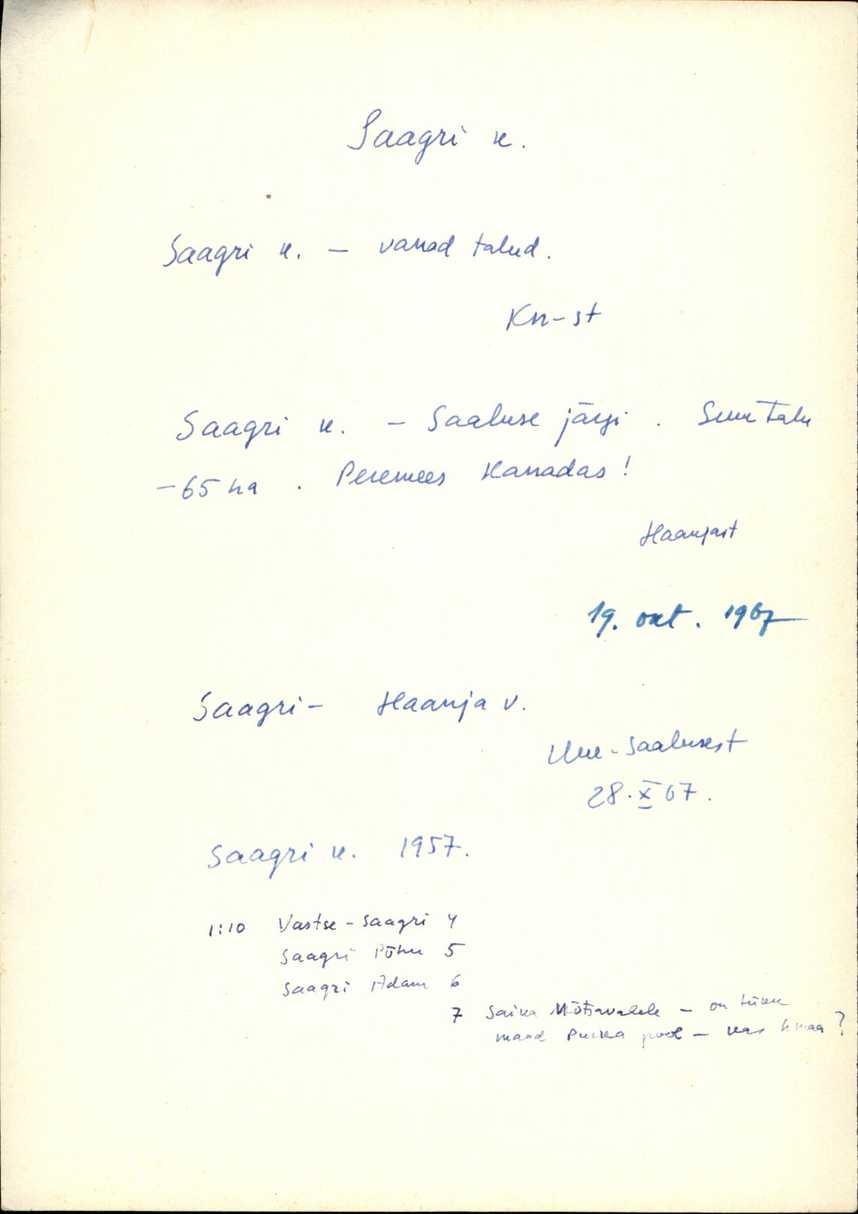 Saagri k.
Saagri k. – vanad talud.
Kn-st
Saagri k. – Saaluse järgi. Suur talu
– 65 ha. Peremees Kanadas!
Haanjast
19. okt. 1967
Saagri – Haanja v.
Uue-Saalusest
28.X 67.
Saagri k. 1957.
1:10 Vastse-Saagri 4
Saagri Põhu 5
Saagri Adam 6
7 Saika – on tükk
maad pool – kas ?